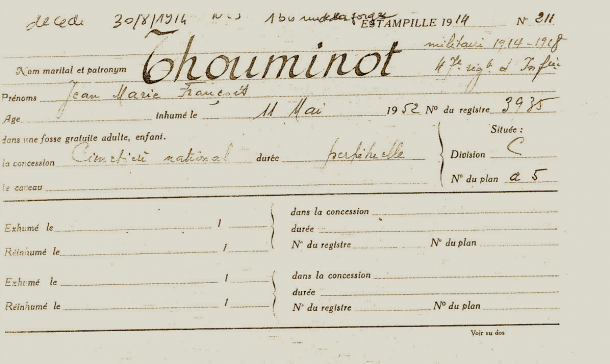 décédé 30/8/1914 ESTAMPILLE 1914 N° 211
militaire 1914-1918
Nom marital et patronym Thouminot 47e régt d'Infrie
Prénoms Jean Marie François
Age inhumé le 11 Mai 1952 N° du registre 3935
dans une fosse gratuite adulte, enfant. Située :
la concession Cimetière national durée perpétuelle Division C
le caveau N° du plan a 5
dans la concession
Exhumé le 1 durée
Réinhumé le 1 N° du registre N° du plan
dans la concession
Exhumé le 1 durée
Réinhumé le 1 N° du registre N° du plan
Voir au dos